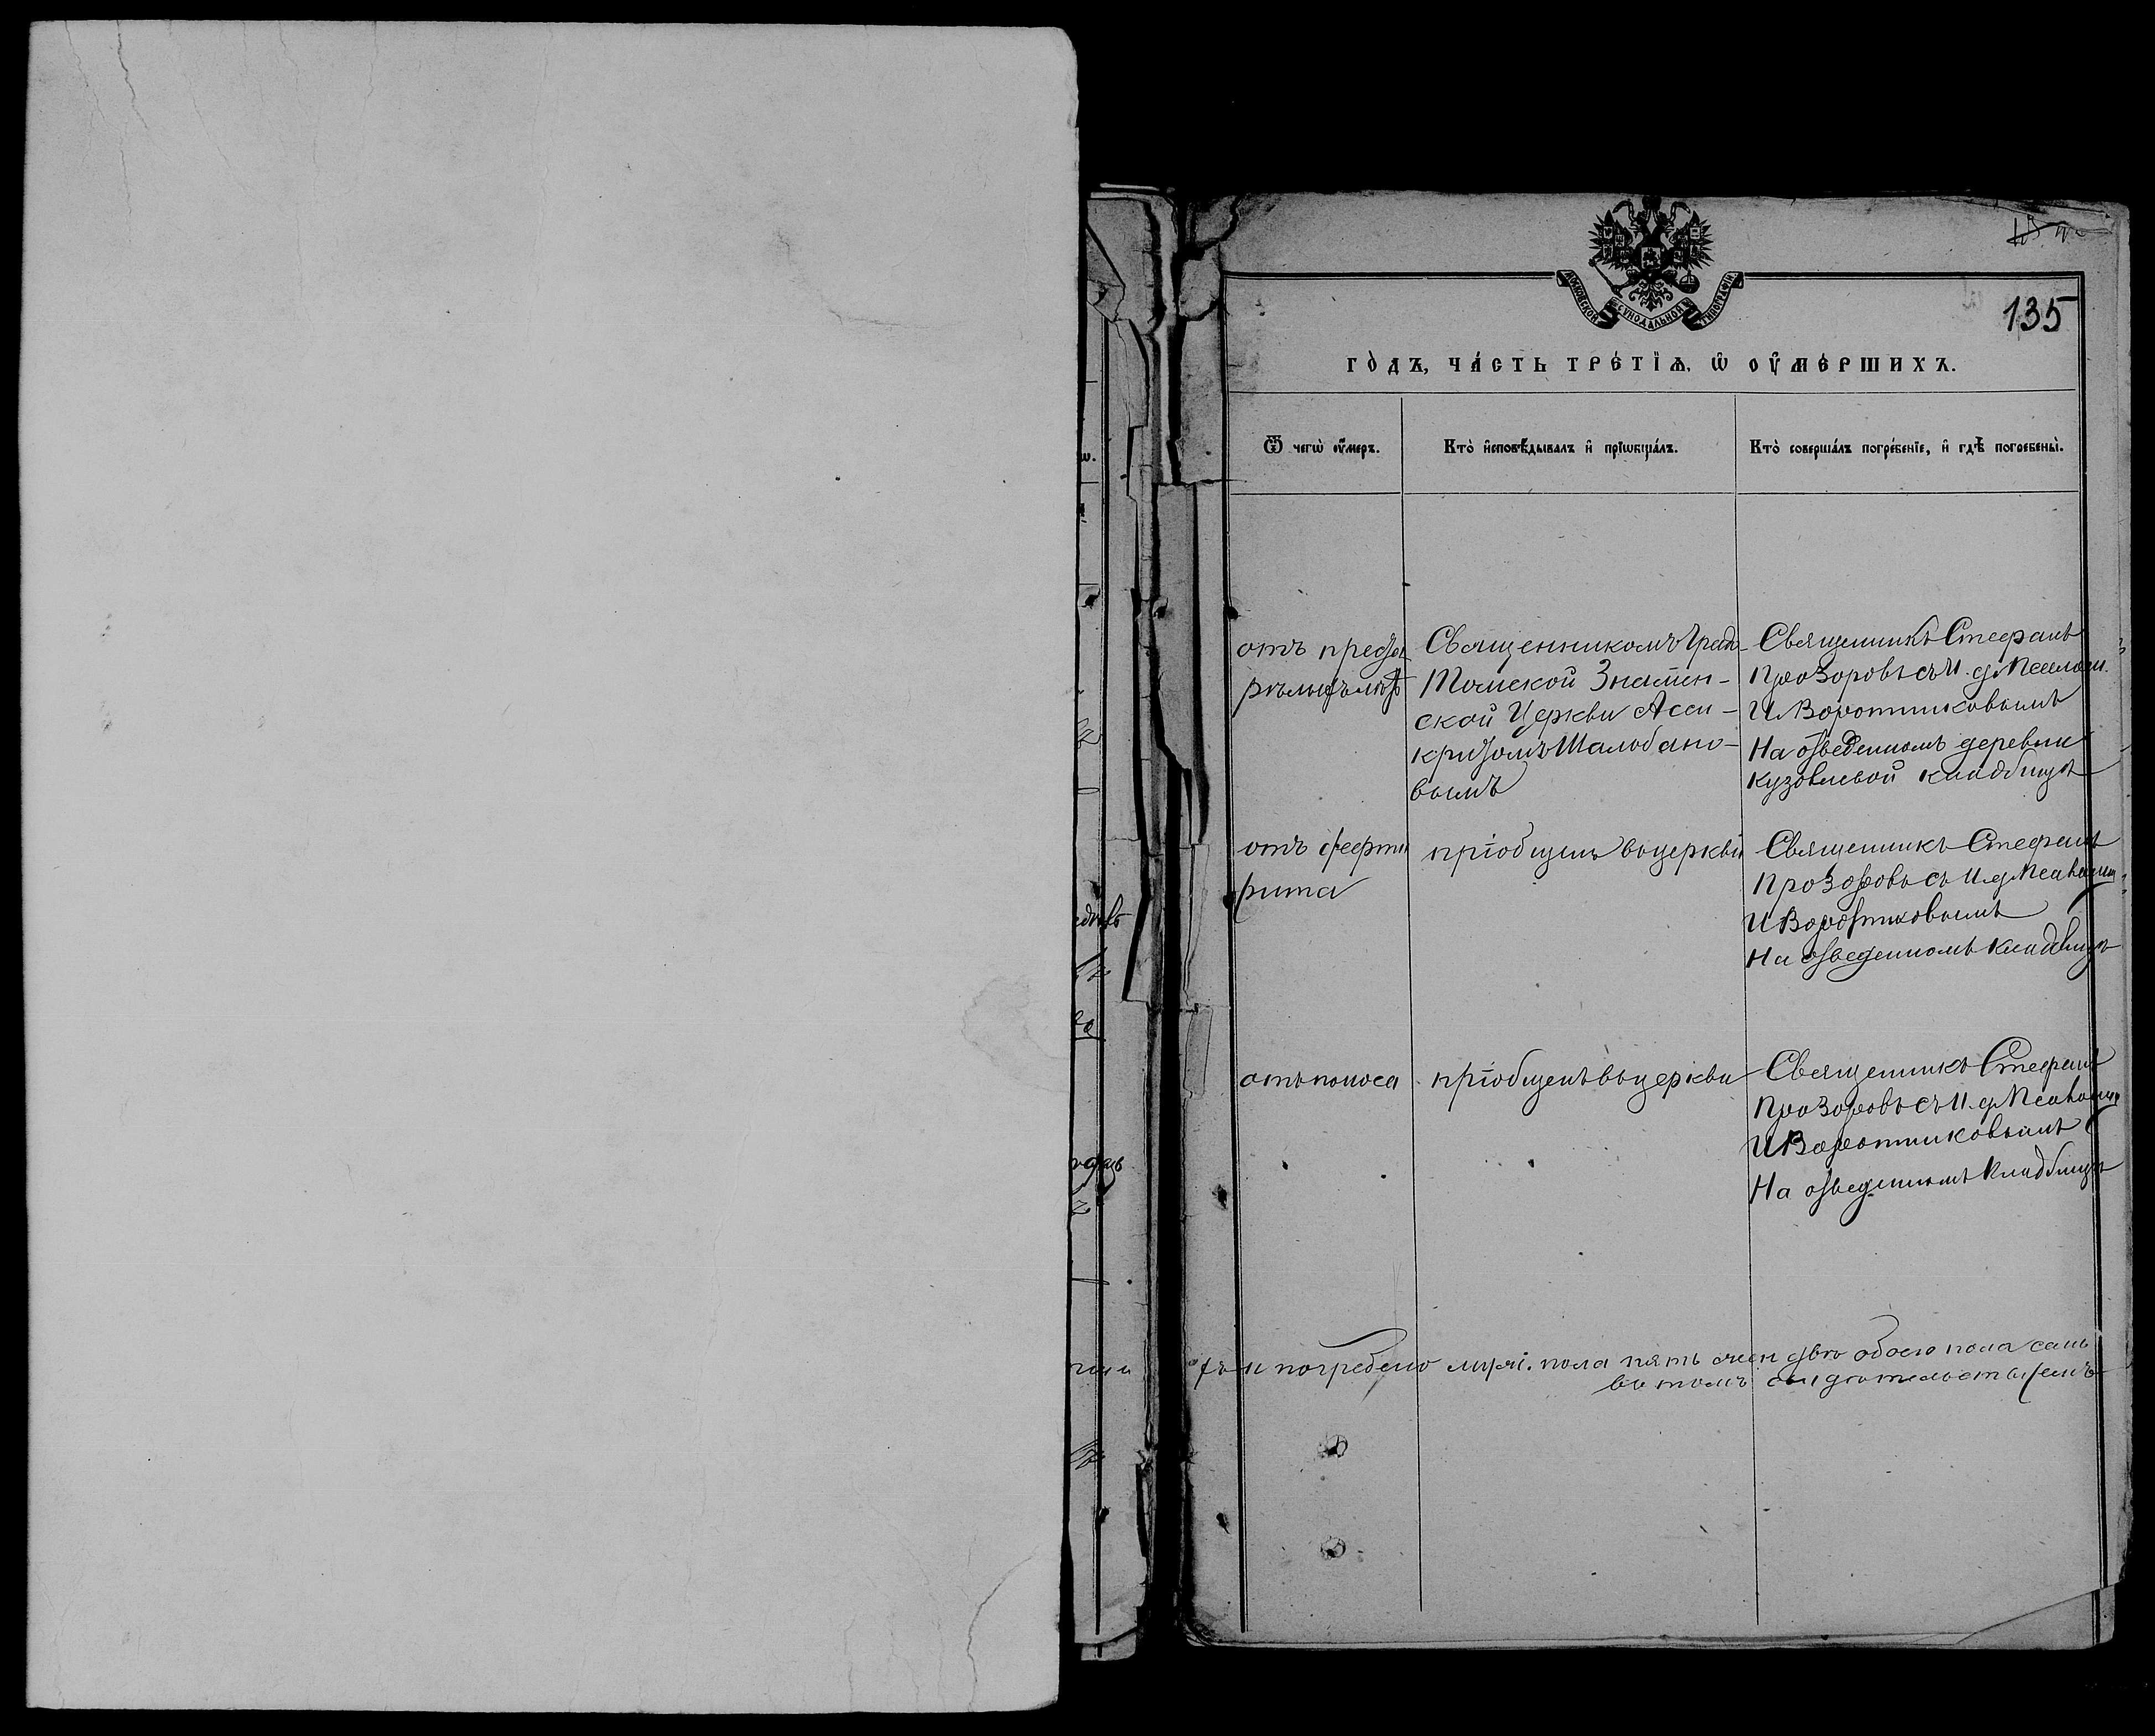 135
МОСКОВСКОЙ СѴНОДАЛЬНОЙ ТИПОГРАФІИ
ГО́ДЪ, ЧА́СТЬ ТРЕ́ТІѦ, Ѡ҆ ОУ҆МЕ́РШИХЪ.
Ѿ чегѡ̀ оу҆́меръ.
Кто̀ и҆сповѣ́дывалъ и҆ прїѡбща́лъ.
Кто̀ соверша́лъ погребе́нїе, и҆ гдѣ̀ погребены̀.
отъ
Священникомъ Градо-
Томской Знамен-
ской Церкви Асси-
критомъ Шалобано-
вымъ
Священникъ Стефанъ
Прозоровъ съ И. д. Псалом.
И Воротниковымъ
На отведенномъ деревни
Кузовлевой кладбищѣ
отъ
пріобщенъ въ церкви
Священникъ Стефанъ
Прозоровъ съ И. д. Псаломщ
И Воротниковымъ
На отведенномъ кладбищѣ
отъ поноса
пріобщенъ въ церкви
Священникъ Стефанъ
Прозоровъ съ И. д. Псаломщ
И Воротниковымъ
На отведенномъ кладбищѣ
и погребено муж. пола пять жен две обоего пола семь
въ томъ свидетельствуемъ